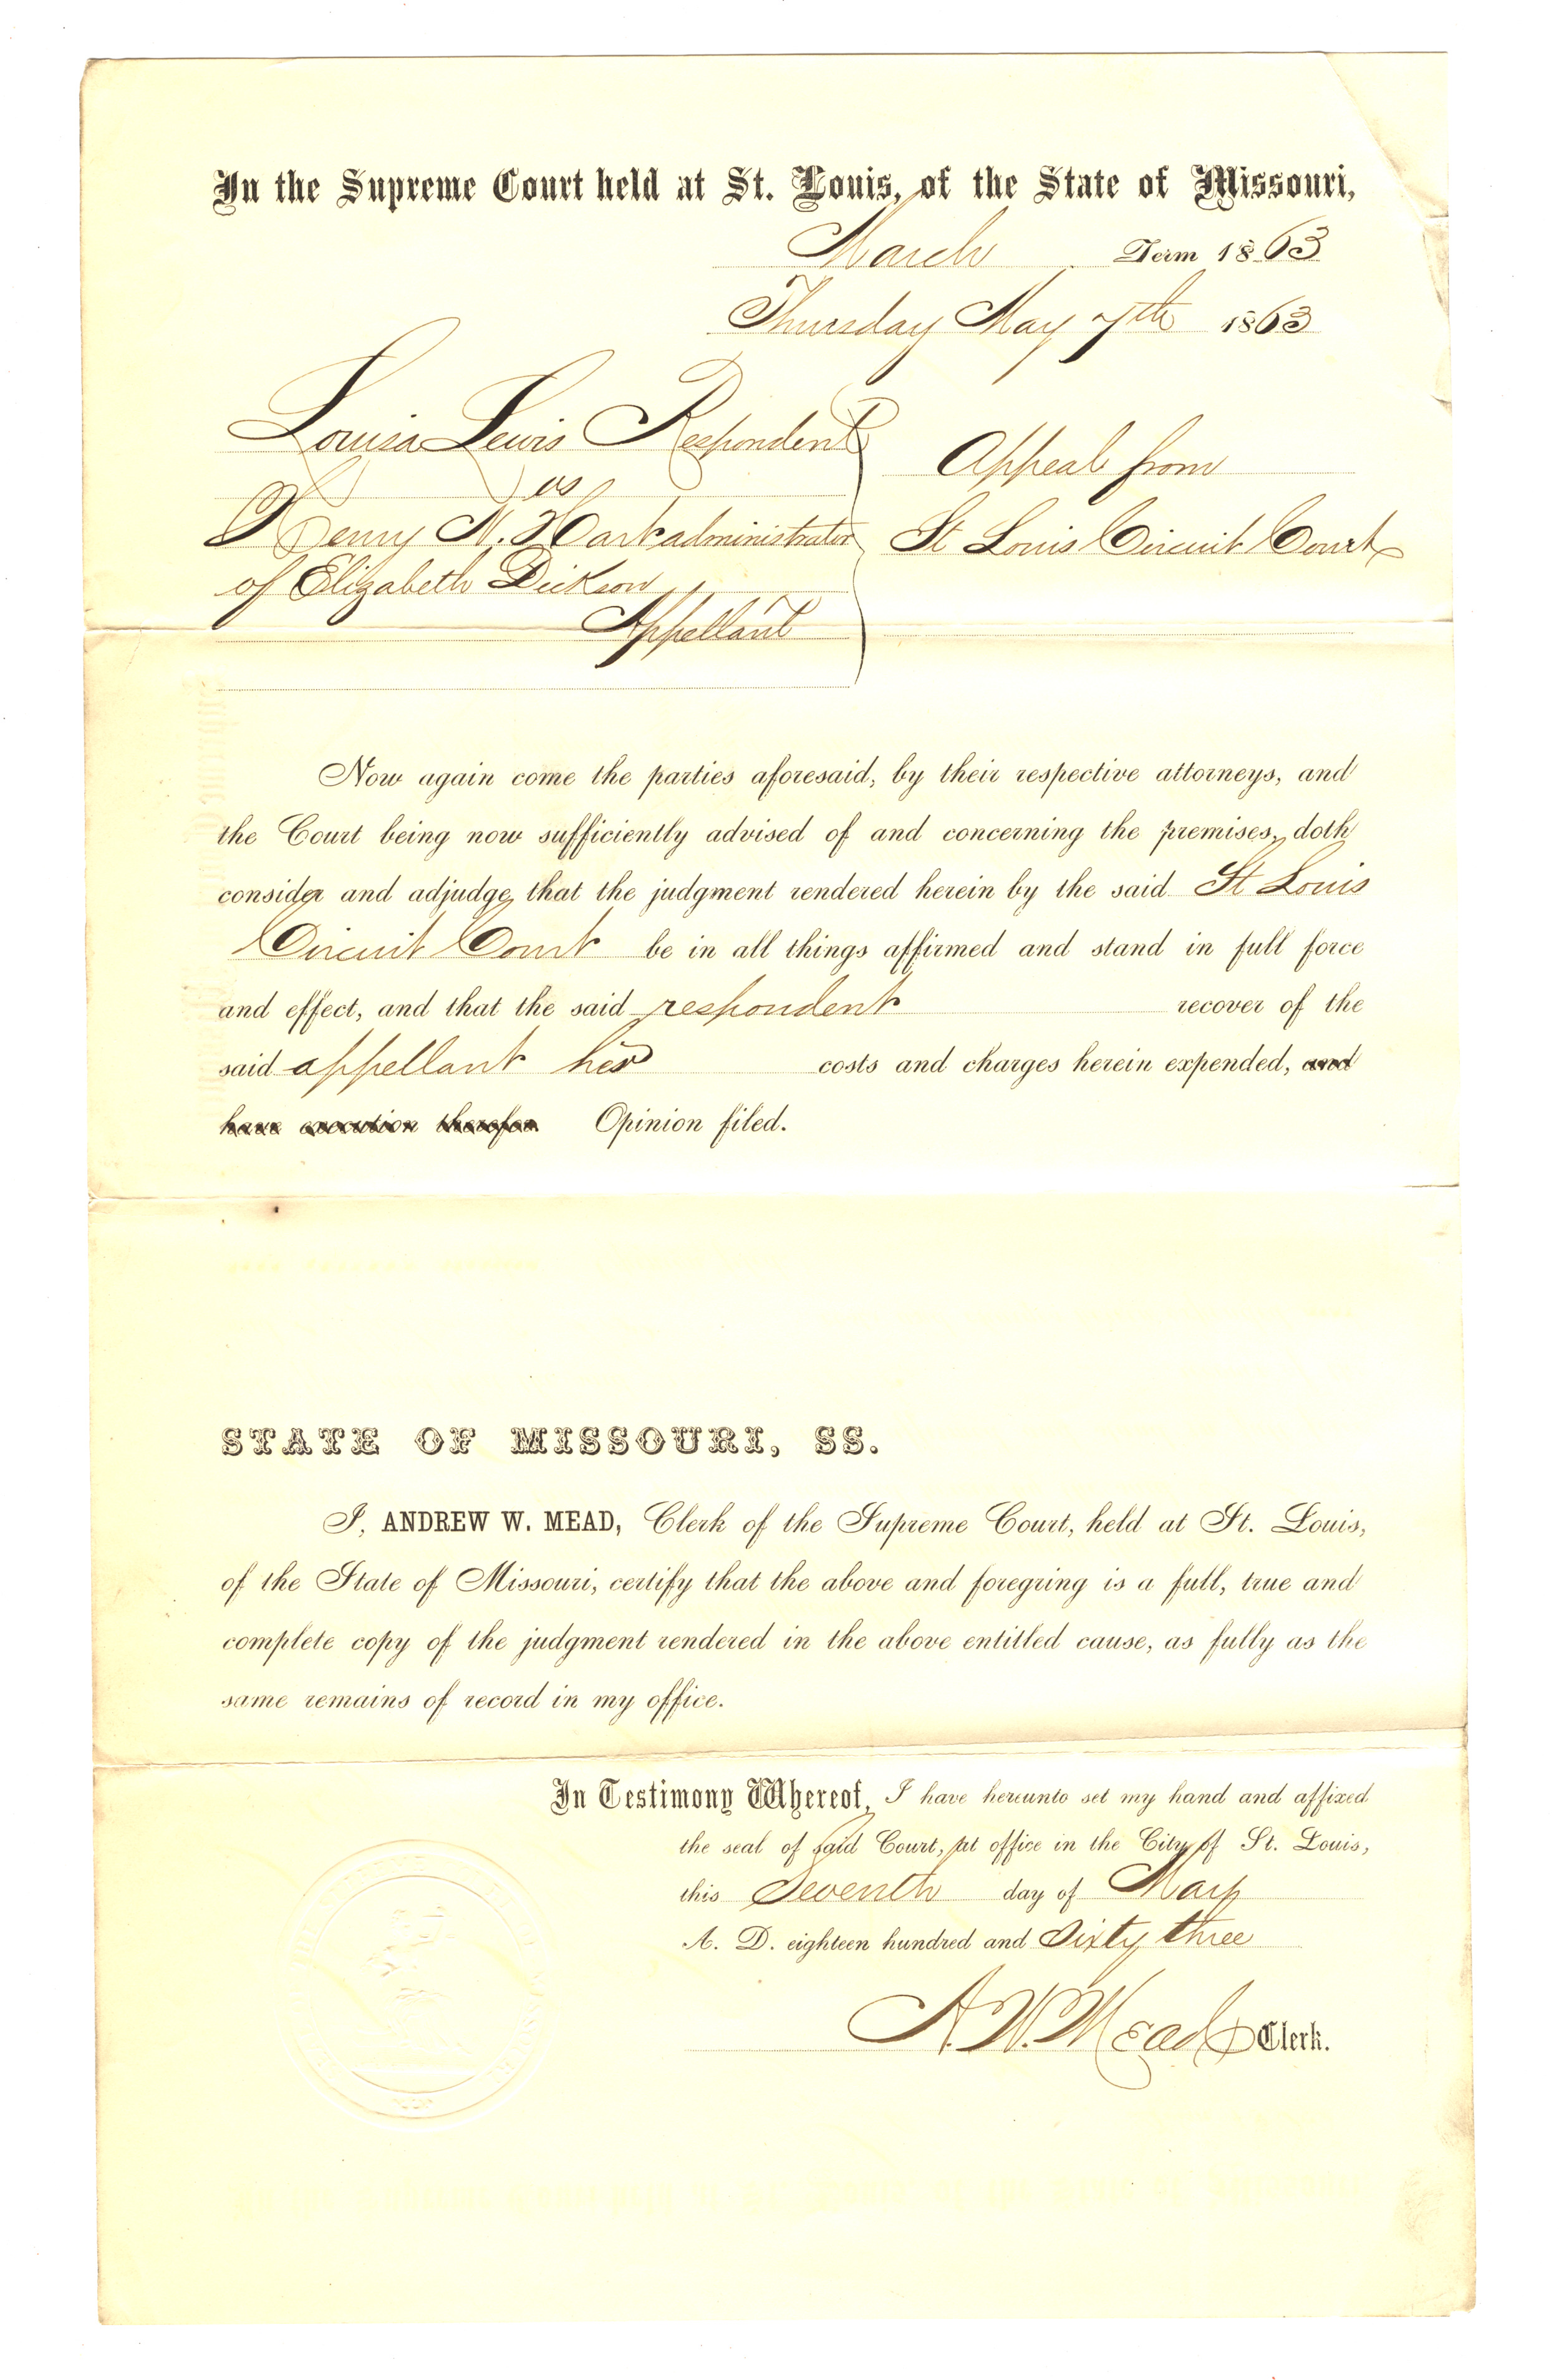 In the Supreme Court held at St. Louis, of the State of Missouri,
March Term 1863
Thursday May 7th 1863
Louisa Lewis Respondent
vs
Henry N. Hart administrator
of Elizabeth Dickson
Appellant
Appeal from
St Louis Circuit Court
Now again come the parties aforesaid, by their respective attorneys, and
the Court being now sufficiently advised of and concerning the premises, doth
consider and adjudge, that the judgment rendered herein by the said St Louis
Circuit Court be in all things affirmed and stand in full force
and effect, and that the said respondent recover of the
said appellant her costs and charges herein expended, and
have execution therefor. Opinion filed.
STATE OF MISSOURI, SS.
I, ANDREW W. MEAD, Clerk of the Supreme Court, held at St. Louis,
of the State of Missouri, certify that the above and foregring is a full, true and
complete copy of the judgment rendered in the above entitled cause, as fully as the
same remains of record in my office.
In Testimony Whereof, I have hereunto set my hand and affixed
the seal of said Court, at office in the City of St. Louis,
this Seventh day of May
A. D. eighteen hundred and Sixty three
A. W. Mead Clerk.